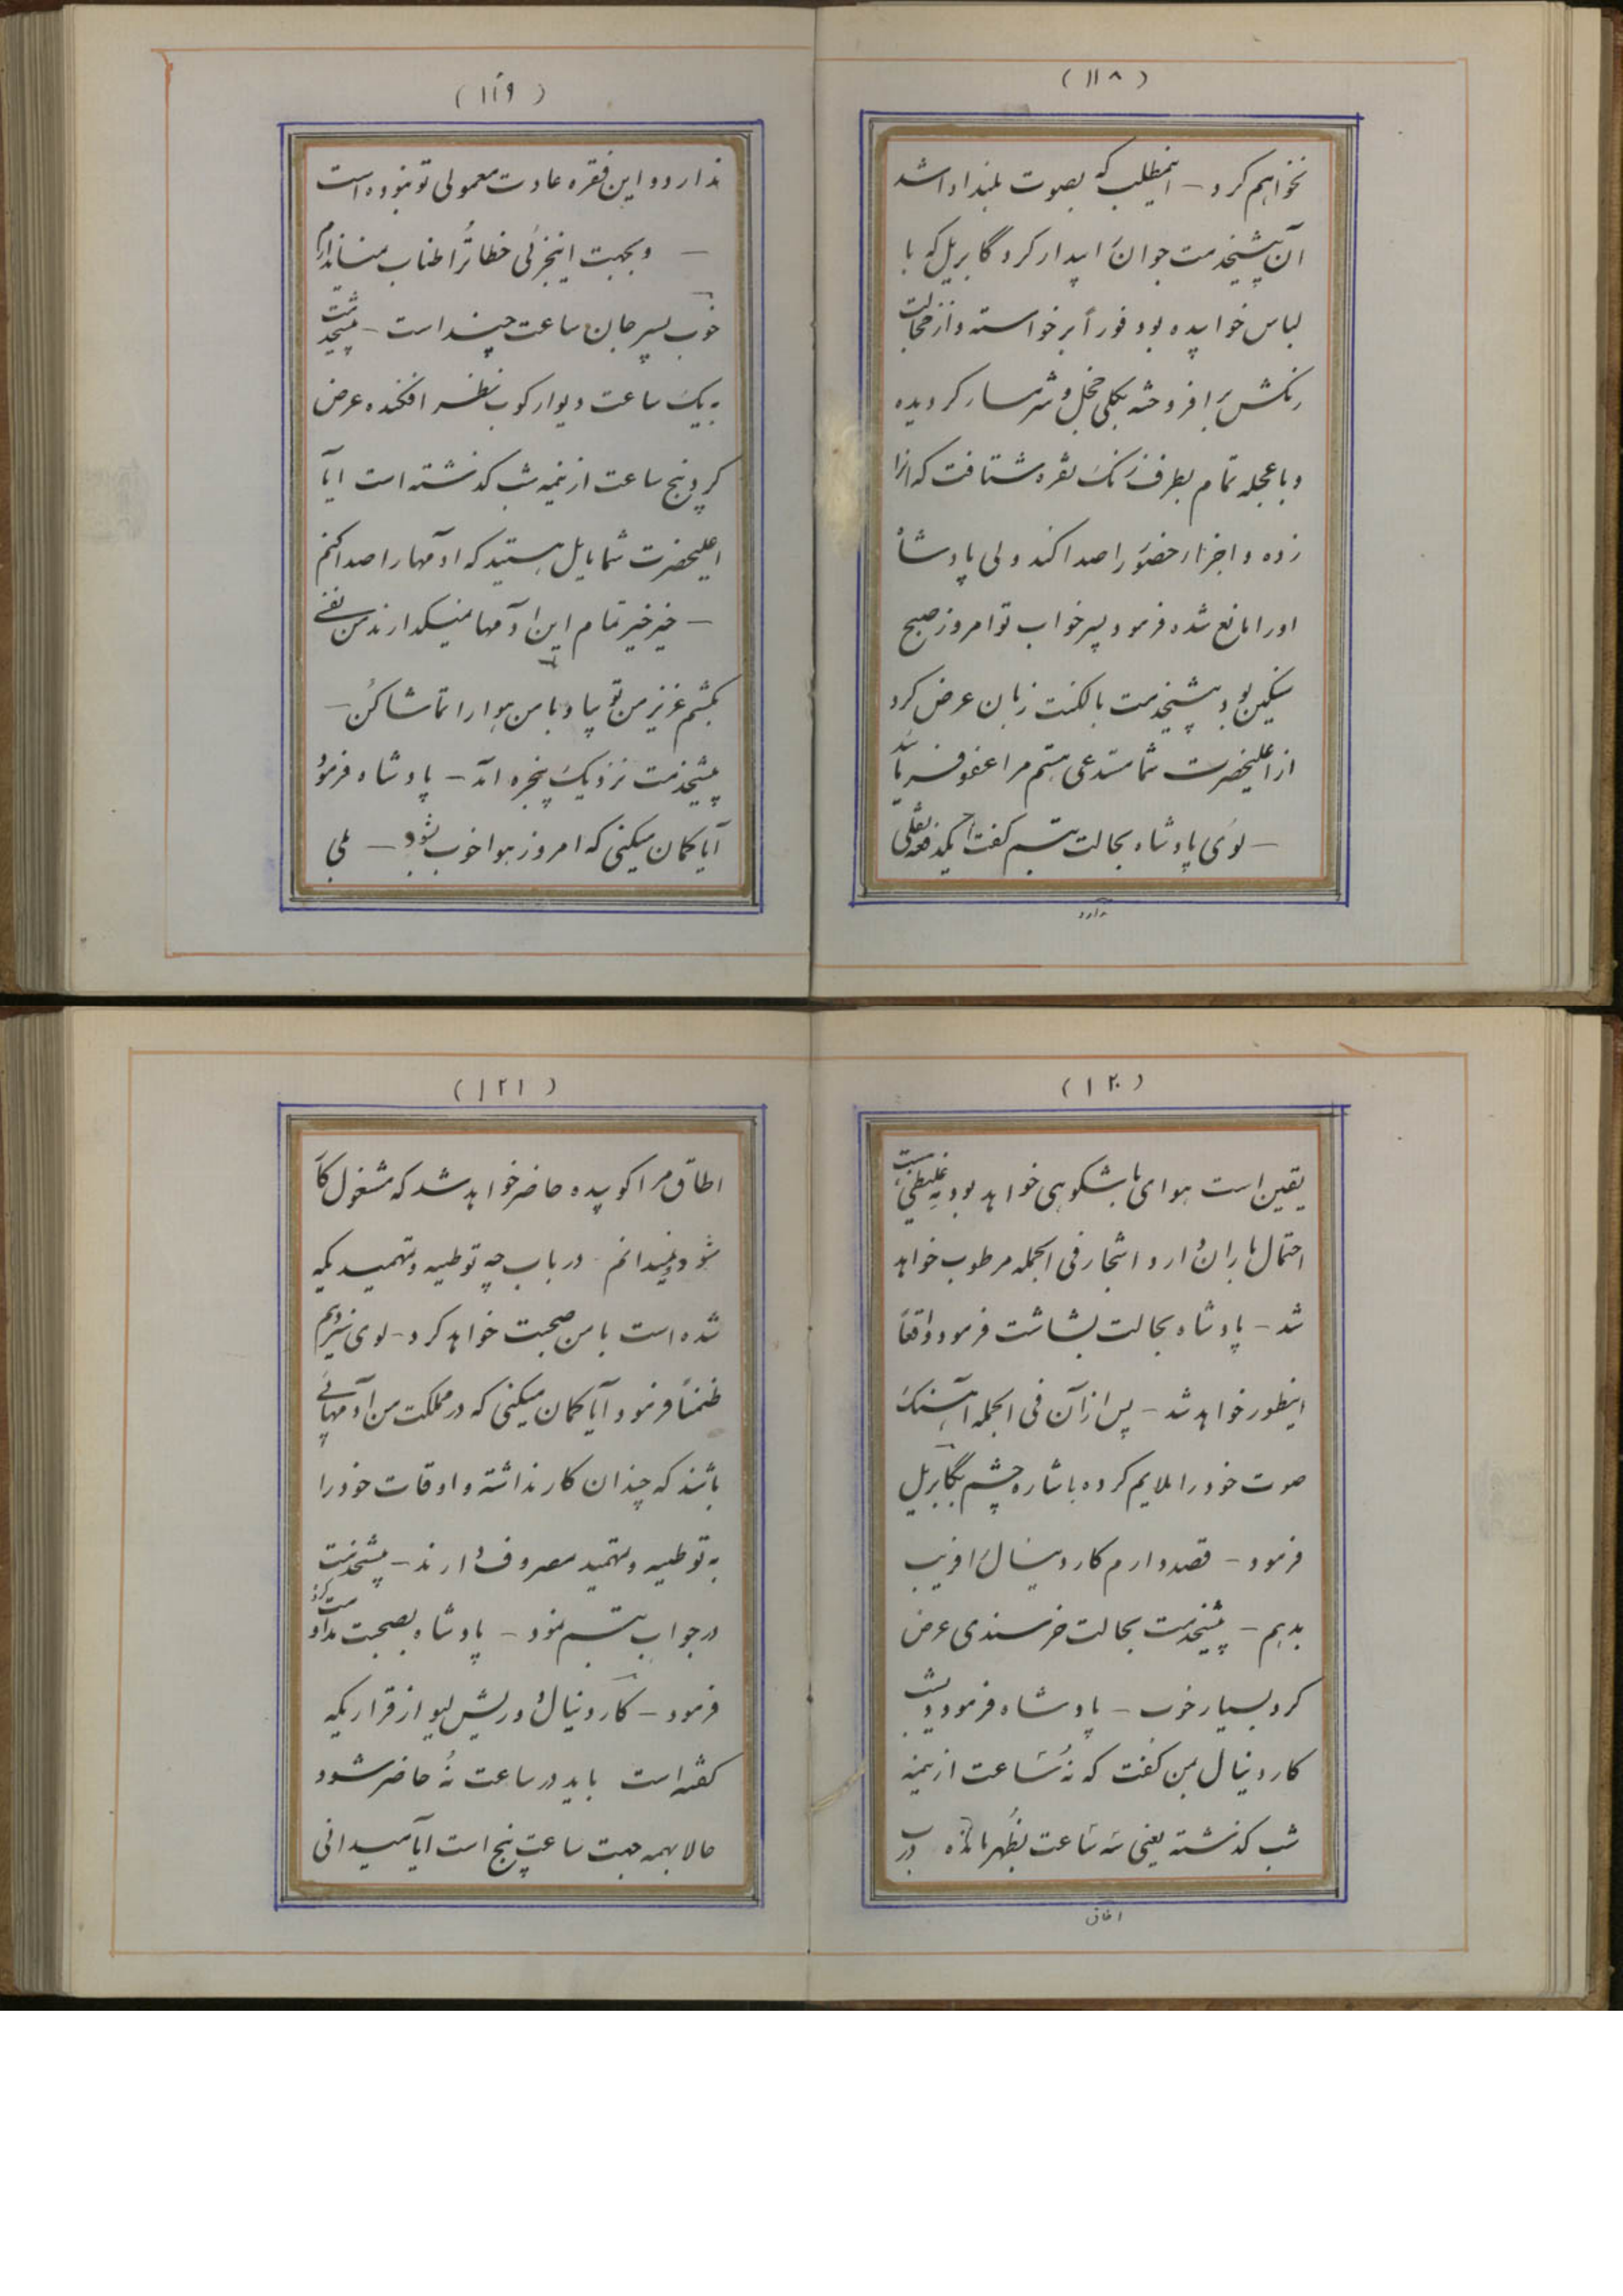 (۱۱۸)
نخواهم کرد – اینمطلب که بصوت بلند ادا شد
آن پیشخدمت جوان را بیدار کرد گابریل که با
لباس خوابیده بود فوراً برخواسته و از خجالت
رنگش برافروخته بکلی خجل و شرمسار گردیده
و با عجله تمام بطرف زنگ نقره شتافت که انرا
زده و اجزاء حضور را صدا کند ولی پادشاه
او را مانع شده فرمود پسر خواب تو امروز صبح
سنگین بود پیشخدمت با لکنت زبان عرض کرد
از اعلیحضرت شما مستدعی هستم مرا عفو فرمایند
– لوی پادشاه بحالت تبسم گفت یکدفعه نقلی
ندارد
(۱۱۹)
ندارد و این فقره عادت معمولی تو نبوده است
– و بجهت اینجزئی خطا ترا طناب نمیاندازم
خوب پسر جان ساعت چند است – پیشخدمت
به یک ساعت دیوار کوب نظر افکنده عرض
کرد پنج ساعت از نیمه شب گذشته است ایا
اعلیحضرت شما مایل هستید که ادمها را صدا کنم
– خیر خیر تمام این ادمها نمیگذارند من نفسی
بکشم عزیز من تو بیا و با من هوا را تماشا کن –
پیشخدمت نزدیک پنجره آمد – پادشاه فرمود
آیا گمان میکنی که امروز هوا خوب بشود – بلی
(۱۲۰)
یقین است هوای باشکوهی خواهد بود
احتمال باران دارد و اشجار فی الجمله مرطوب خواهد
شد – پادشاه بحالت بشاشت فرمود واقعاً
اینطور خواهد شد – پس از آن فی الجمله آهنگ
صوت خود را ملایم کرده باشاره چشم بگابریل
فرمود – قصد دارم کاردینال را فریب
بدهم – پیشخدمت بحالت خرسندی عرض
کرد بسیار خوب – پادشاه فرمود دیشب
کاردینال بمن گفت که نه ساعت از نیمه
شب گذشته یعنی سه ساعت بظهر مانده درب
اطاق
(۱۲۱)
اطاق مرا کوبیده حاضر خواهد شد که مشغول کار
شود و نمیدانم در باب چه توطیه و تمهیدیکه
شده است با من صحبت خواهد کرد – لوی سیزدهم
ضمناً فرمود آیا گمان میکنی که در مملکت من آدمهائی
باشند که چندان کار نداشته و اوقات خود را
به توطیه و تمهید مصروف دارند – پیشخدمت
در جواب تبسم نمود – پادشاه بصحبت مداومت کرده
فرمود – کاردینال دو ریشلیو از قراریکه
گفته است باید در ساعت نه حاضر شود
حالا بهمه جهت ساعت پنج است آیا میدانی